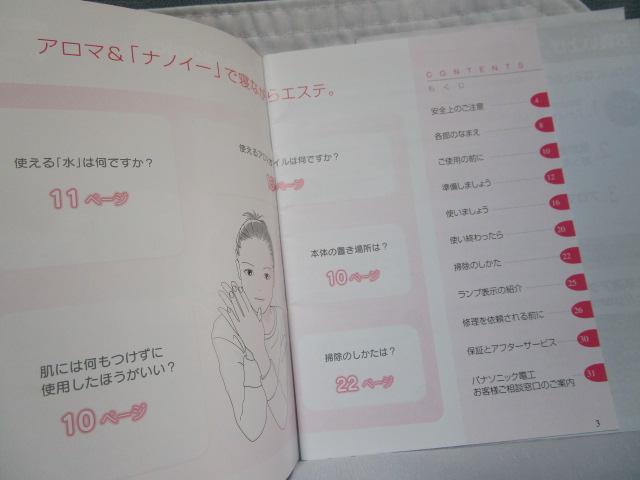 アロマ&「ナノイー」で寝ながらエステ。
使える「水」は何ですか?
11 ページ
使えるアロマオイルは何ですか?
ページ
肌には何もつけずに
使用したほうがいい?
10 ページ
本体の置き場所は?
10 ページ
掃除のしかたは?
22 ページ
CONTENTS
もくじ
安全上のご注意 4
各部のなまえ 8
ご使用の前に 10
準備しましょう 12
使いましょう 16
使い終わったら 20
掃除のしかた 22
ランプ表示の紹介 25
修理を依頼される前に 26
保証とアフターサービス 30
パナソニック電工
お客様ご相談窓口のご案内 31
3